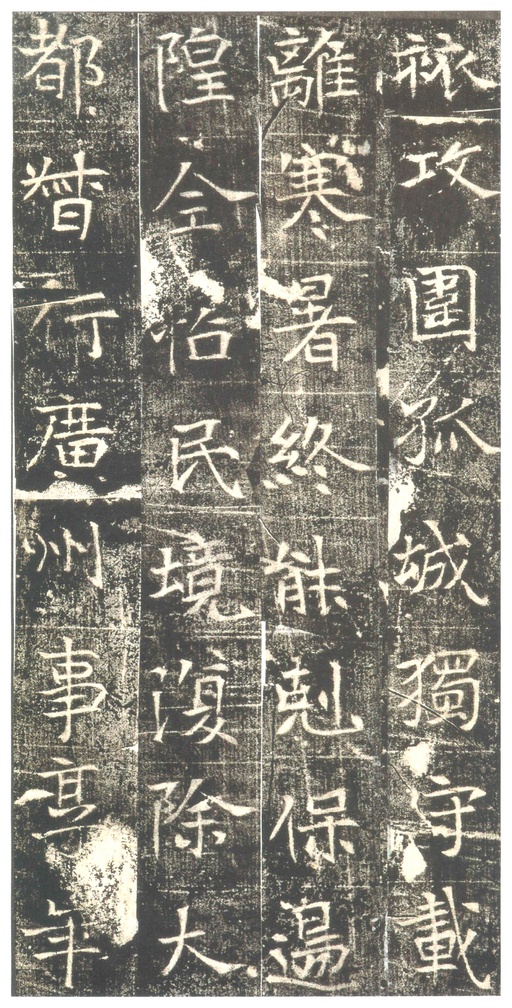 攻圍孤城獨守載
離寒暑終能尅保邊
隍全怡民境澓除大
都督行廣州事享年